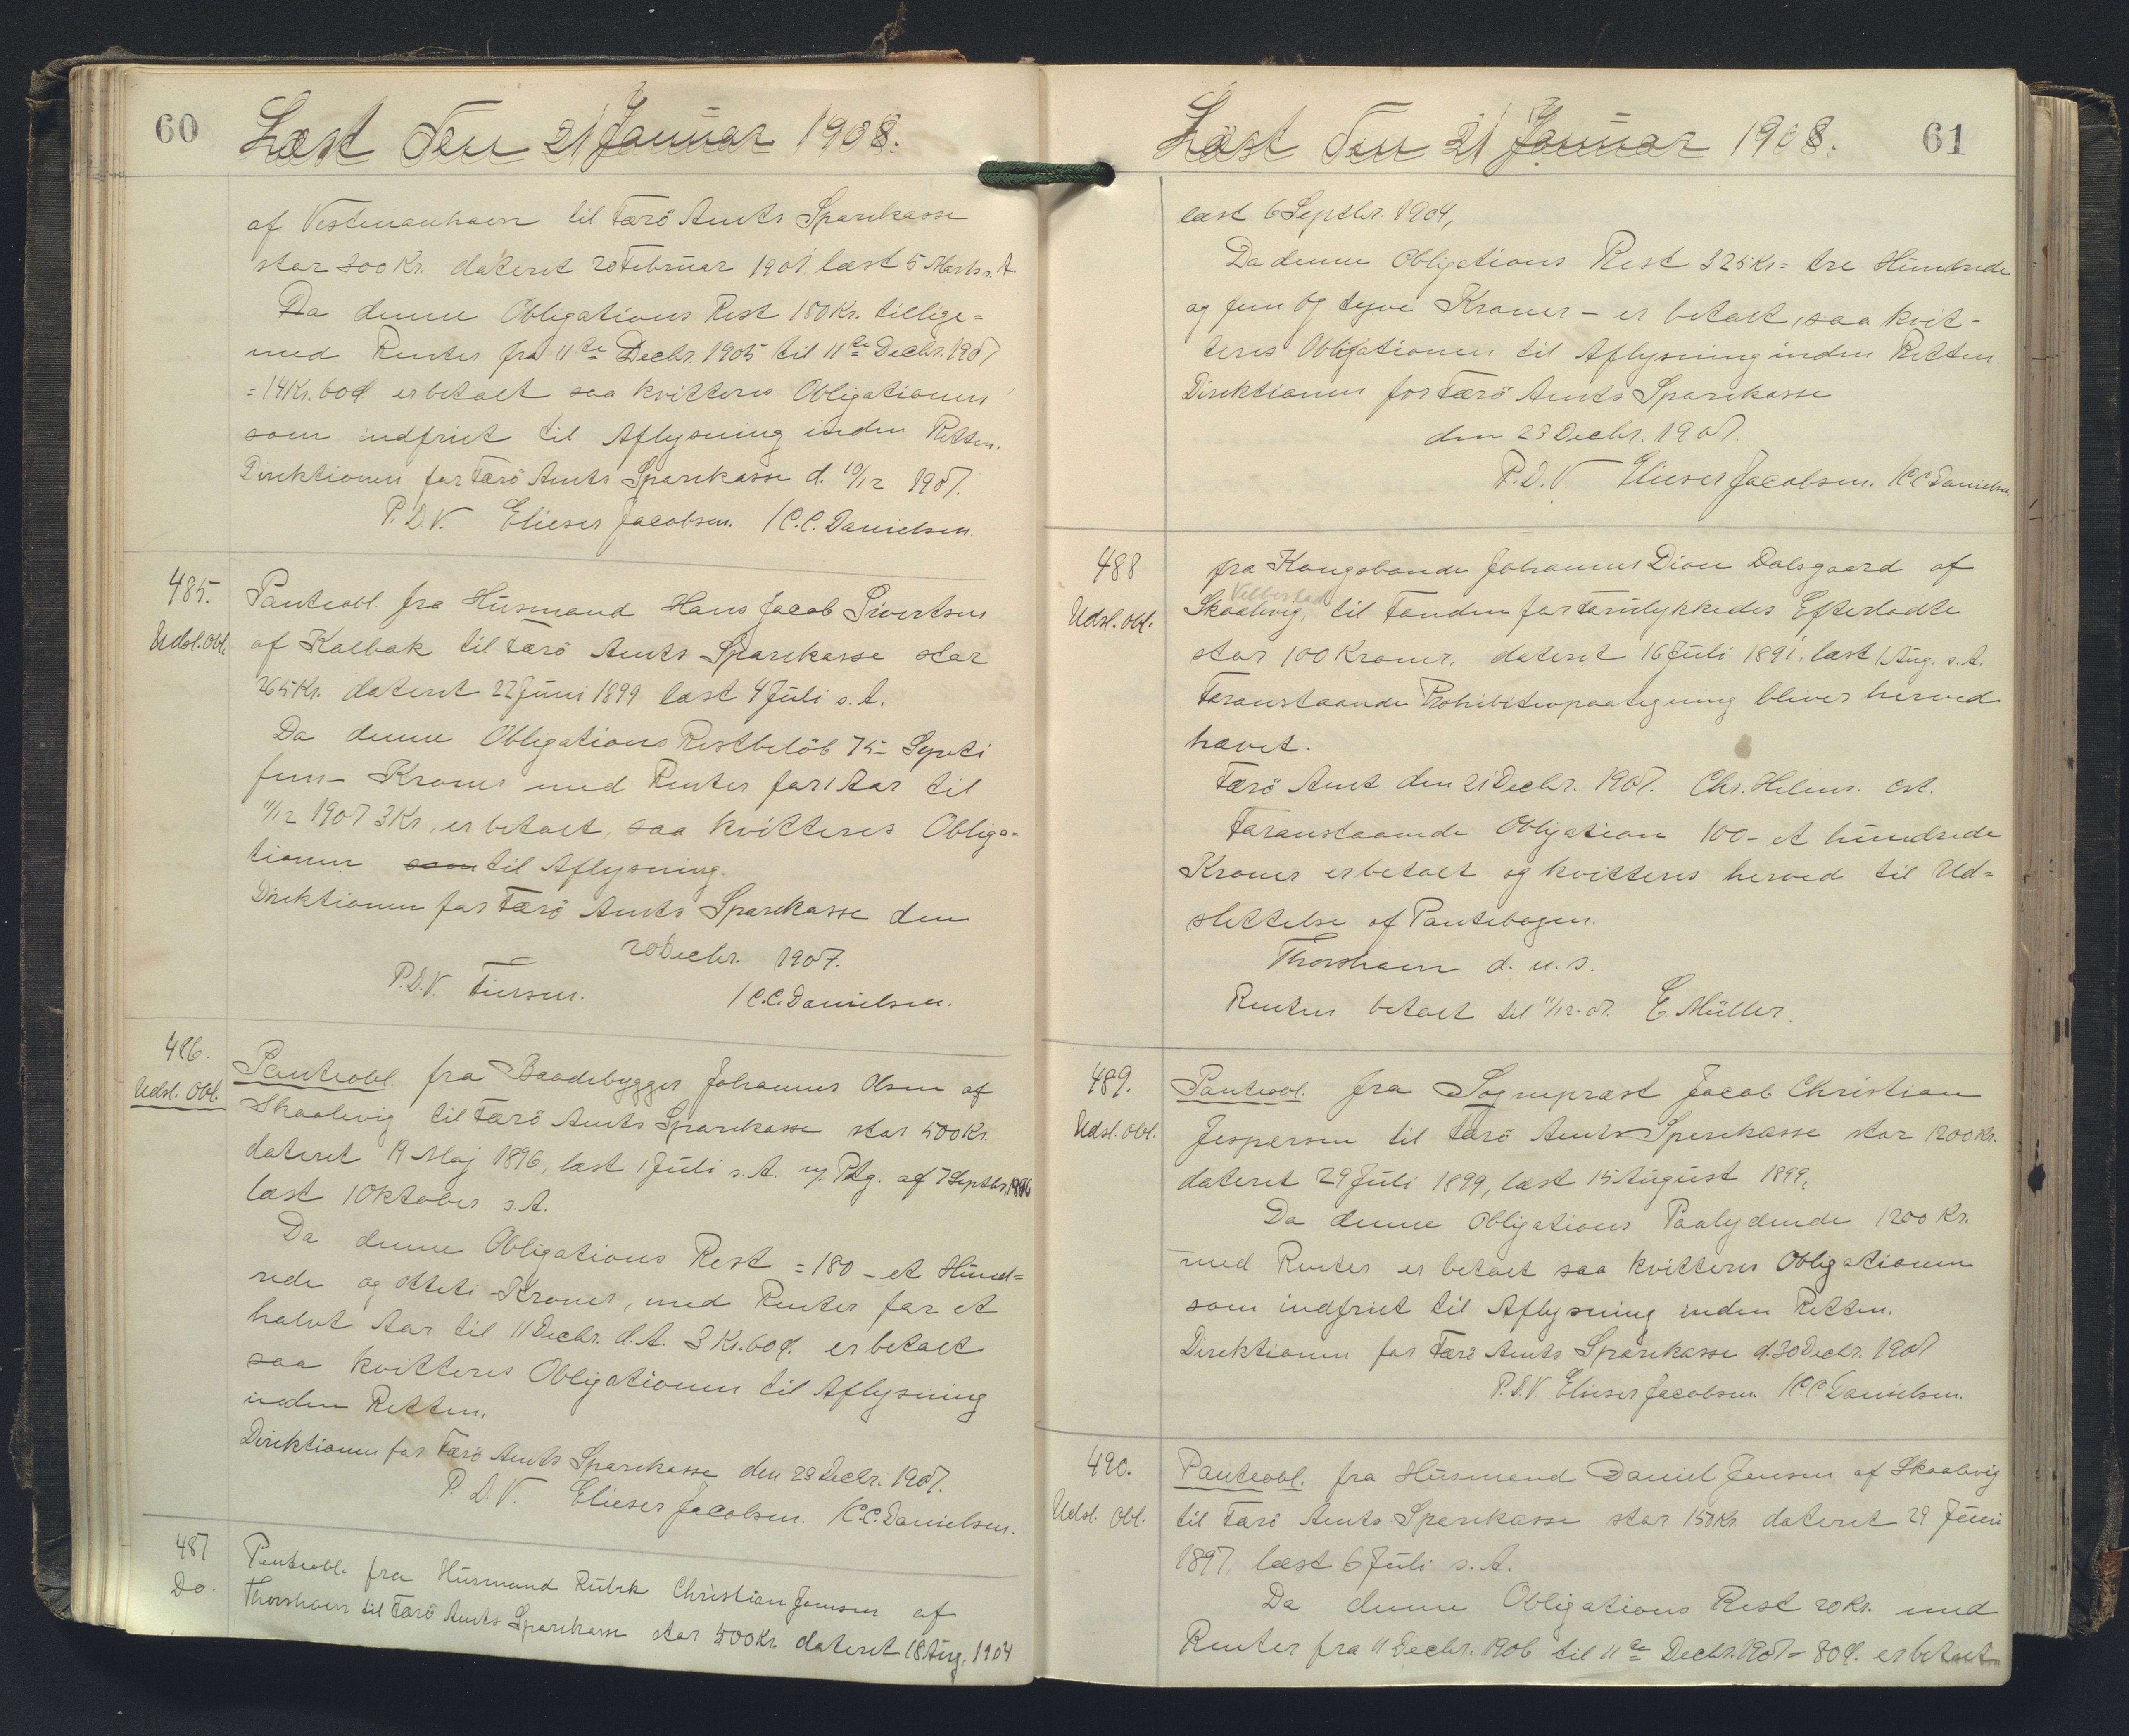 60
Læst Den 21 Januar 1908.
af Vestmanhavn til Færö Amts Sparekasse
stor 300 Kr. dateret 20 Februar 1901 læst 5 Marts s. A.
Da denne Obligations Rest 180 Kr. tillige=
med Renter fra 11te Decbr. 1905 til 11te Decbr. 1907
= 14 Kr. 60 Ø er betalt saa kvitteres Obligationen
som indfriet til Aflysning inden Retten.
Direktionen for Færö Amts Sparekasse d. 10/12 1907.
P. D. V. Elieser Jacobsen. / C. C. Danielsen.
485.
Udsl. Obl.
Panteobl. fra Husmand Hans Jacob Sivertsen
af Kalbak til Færö Amts Sparekasse stor
265 Kr. dateret 22 Juni 1899 læst 4 Juli s. A.
Da denne Obligations Restbelöb 75 - Sytti
fem - Kroner med Renter for 1 Aar til
11/12 1907 3 Kr. er betalt, saa kvitteres Obliga=
tionen som til Aflysning.
Direktionen for Færö Amts Sparekasse den
20 Decbr. 1907.
P. D. V. Finsen. / C. C. Danielsen.
486.
Udsl. Obl.
Panteobl. fra Baadebygger Johannes Olsen af
Skaalevig til Færö Amts Sparekasse stor 500 Kr.
dateret 19 Maj 1896, læst 1 Juli s. A. m/ Ptg. af 7 Septbr. 1896
læst 1 Oktober s. A.
Da denne Obligations Rest = 180 - et Hund=
rede og otteti - Kroner, med Renter for et
halvt Aar til 11 Decbr. d. A. 3 Kr. 60 Ø. er betalt
saa kvitteres Obligationen til Aflysning
inden Retten.
Direktionen for Færö Amts Sparekasse den 23 Decbr. 1907.
P. D. V. Elieser Jacobsen. / C. C. Danielsen.
487
Do.
Panteobl. fra Husmand Rubek Christian Jensen af
Thorshavn til Færö Amts Sparekasse stor 500 Kr. dateret 18 Aug. 1904
61
Læst Den 21 Januar 1908.
læst 6 Septbr. 1904,
Da denne Obligations Rest 325 Kr = tre Hundrede
og fem og tyve Kroner - er betalt, saa kvit-
teres Obligationen til Aflysning inden Retten
Direktionen for Færö Amts Sparekasse
den 23 Decbr. 1907.
P. D. V. Elieser Jacobsen. / C. C. Danielsen.
488
Udsl. Obl.
fra Kongsbonde Johannes Dion Dalsgaard af
Velbestad
Skaalevig, til Fonden for Forulykkedes Efterladte
stor 100 Kroner, dateret 16 Juli 1891, læst 1 Aug. s. A.
Foranstaaende Prohibitivpaategning bliver herved
hævet.
Færö Amt den 21 Decbr. 1907. Chr. Helms. cst.
Foranstaaende Obligation 100 - et hundrede
Kroner er betalt og kvitteres herved til Ud=
slettelse af Pantebogen.
Thorshavn d. u. s.
Renten betalt til 11/12 - 07. E. Müller.
489.
Udsl. Obl.
Panteobl. fra Sognepræst Jacob Christian
Jespersen til Færö Amts Sparekasse stor 1200 Kr.
dateret 29 Juli 1899, læst 15 August 1899,
Da denne Obligations Paalydende 1200 Kr.
med Renter er betalt saa kvitteres Obligationen
som indfriet til Aflysning inden Retten.
Direktionen for Færö Amts Sparekasse d. 30 Decbr. 1907
P. D. V. Elieser Jacobsen. / C. C. Danielsen.
490.
Udsl. Obl.
Panteobl. fra Husmand Daniel Jensen af Skaalevig
til Færö Amts Sparekasse stor 150 Kr. dateret 29 Juni
1897, læst 6 Juli s. A.
Da denne Obligations Rest 20 Kr. med
Renter fra 11 Decbr. 1906 til 11te Decbr. 1907 = 80 Ø. er betalt